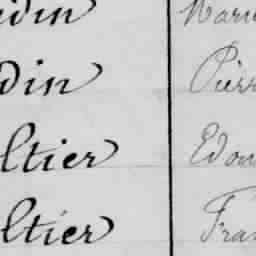 din Marie
din Pierr
ltier Edou
ltier Fran